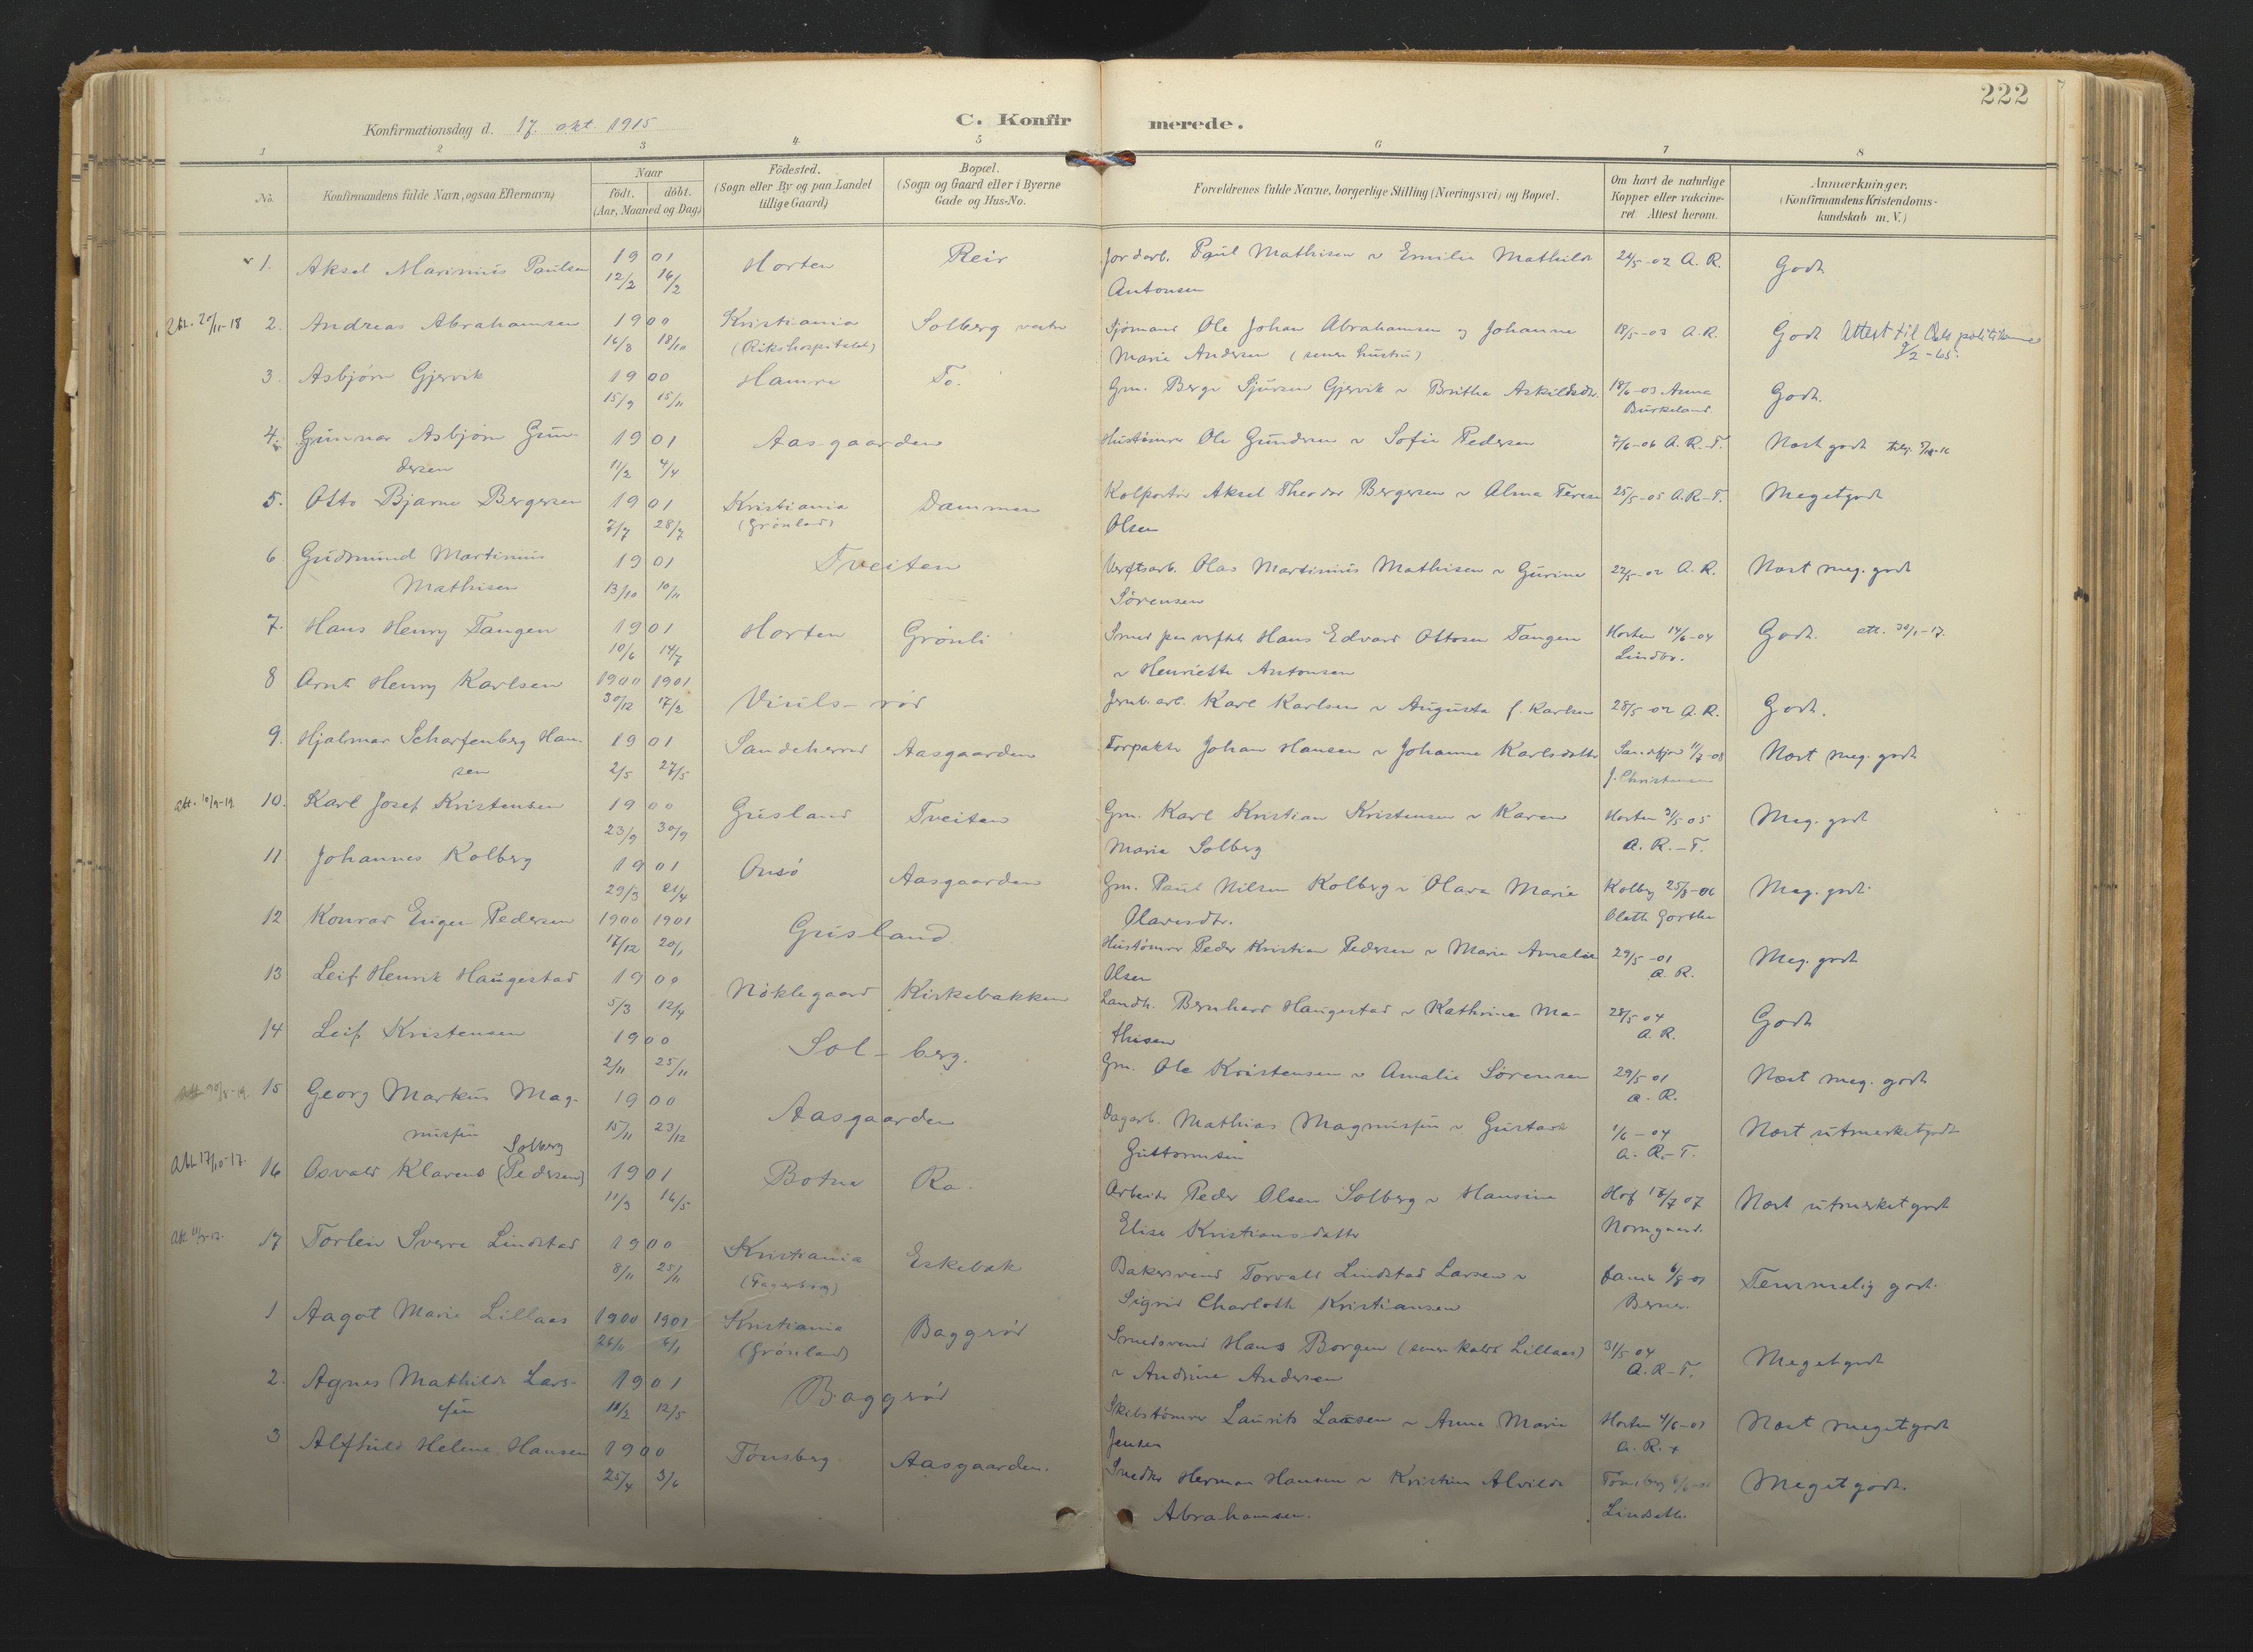 222
Konfirmationsdag d. 17. okt. 1915
C. Konfirmerede.
1 2 3 4 5 6 7 8
No.
Konfirmandens fulde Navn, ogsaa Efternavn)
Naar
födt. döbt.
(Aar, Maaned og Dag)
Födested.
(Sogn eller By og paa Landet
tillige Gaard)
Bopæl.
(Sogn og Gaard eller i Byerne
Gade og Hus-No.
Forældrenes fulde Navne, borgerlige Stilling (Næringsvei) og Bopæl.
Om havt de naturlige
Kopper eller vakcine-
ret. Attest herom.
Anmærkninger.
(Konfirmandens Kristendoms-
kundskab m. V.)
1. Aksel Marinius Paulsen 1901 12/2 16/2 Horten Reir Jordarb. Paul Mathisen & Emilie Mathilde
Antonsen 24/5-02 A. R. Godt
Att. 20/11-18 2. Andreas Abrahamsen 1900 16/8 18/10 Kristiania
(Rikshospitalet) Solberg vestre Sjömand Ole Johan Abrahamsen og Johanne
Marie Andersen (senere hustru) 18/5-03 A. R. Godt Attest til Oslo politikammer
9/2-65.
3. Asbjörn Gjervik 1900 15/9 15/11 Hamre To. Gm. Berge Sjursen Gjervik & Britha Askildsdtr. 18/6-03 Anna
Burkeland Godt.
4. Gunnar Asbjörn Gun-
dersen 1901 11/2 4/4 Aasgaarden Hustömrer Ole Gundersen & Sofie Pedersen 7/6-06 A. R.-T. Næst godt
5. Otto Bjarne Bergersen 1901 7/7 28/7 Kristiania
(Grönland) Dammen Kolportör Aksel Theodor Bergersen & Alma Terese
Olsen 25/5-05 A. R-T. Megetgodt
6. Gudmund Martinius
Mathisen 1901 13/10 10/11 Tveiten Verftsarb. Olas Martinius Mathisen & Gurine
Sörensen 22/5-02 A. R. Næst meg. godt
7. Hans Henry Tangen 1901 10/6 14/7 Horten Grönli Smed paa verftet Hans Edvard Ottosen Tangen
& Henriette Antonsen Horten 14/6-04
Lindbo. Godt. att. 30/1-17.
8 Arnt Henry Karlsen 1900 1901 30/12 17/2 Viuls-röd Jernb. arb. Karl Karlsen & Augusta f. Karlsen 28/5 02 A. R. Godt.
9. Hjalmar Scharfenberg Han-
sen 1901 2/5 27/5 Sandeherred Aasgaarden Forpakter Johan Hansen & Johanne Karlsdatter Sandefjord 11/7-03
J. Christensen Næst meg. godt
Att. 10/9-19 10. Karl Josef Kristensen 1900 23/9 30/9 Grisland Tveiten Gm. Karl Kristian Kristensen & Karen
Marie Solberg Horten 31/5 05
A. R.-T. Meg. godt
11. Johannes Kolberg 1901 29/3 21/4 Onsö Aasgaarden Gm. Paul Nilsen Kolberg & Olava Marie
Olavesdtr. Kolberg 25/8-06 Meg. godt.
12 Konrad Eugen Pedersen 1900 1901 17/12 20/1 Grisland Hustömrer Peder Kristian Pedersen & Marie Amalie
Olsen 29/5-01
A. R. Meg. godt
13 Leif Henrik Haugestad 1900 5/3 12/4 Nöklegaard Kirkebakken Landh. Bernhard Haugestad & Kathrine Ma-
thisen 28/5 04
A. R. Godt
14 Leif Kristensen 1900 2/11 25/11 Sol-berg. Gm. Ole Kristensen & Amalie Sörensen 29/5 01
A. R. Næst meg. godt
15 Georg Markus Mag-
nussen 1900 15/11 23/12 Aasgaarden Dagarb. Mathias Magnussen & Gustava
Guttormsen 1/6-04
A. R.-T. Næst utmerket godt
Att 17/10-17. 16 Osvald Klareus (Pedersen) Solberg 1901 11/3 16/5 Botne Ra. Arbeider Peder Olsen Solberg & Hansine
Elise Kristiansdatter Hof 17/7 07
Norngaard. Næst utmerket godt
17 Torleiv Sverre Lindstad 1900 8/11 25/11 Kristiania
(Fagerborg) Eskebæk Bakersvend Torvald Lindstad Larsen &
Sigrid Charlotte Kristiansen Berner. Temmelig godt.
1 Aagot Marie Lillaas 1900 1901 26/11 6/1 Kristiania
(Grönland) Baggeröd Smedsvend Hans Borgen (senere kaldt Lillaas)
& Andrine Andersen 31/5 04
A. R-T. Megetgodt
2. Agnes Mathilde Lars-
sen 1901 11/2 12/5 Baggeröd Skibstömrer Laurits Larsen & Anna Marie
Jensen Horten 4/6-07
A. R. Næst megetgodt
3 Alfhild Helene Hansen 1900 25/4 3/6 Tönsberg. Aasgaarden. Snedker Herman Hansen & Kristine Alvilde
Abrahamsen. Tönsberg
Lindseth. Megetgodt.